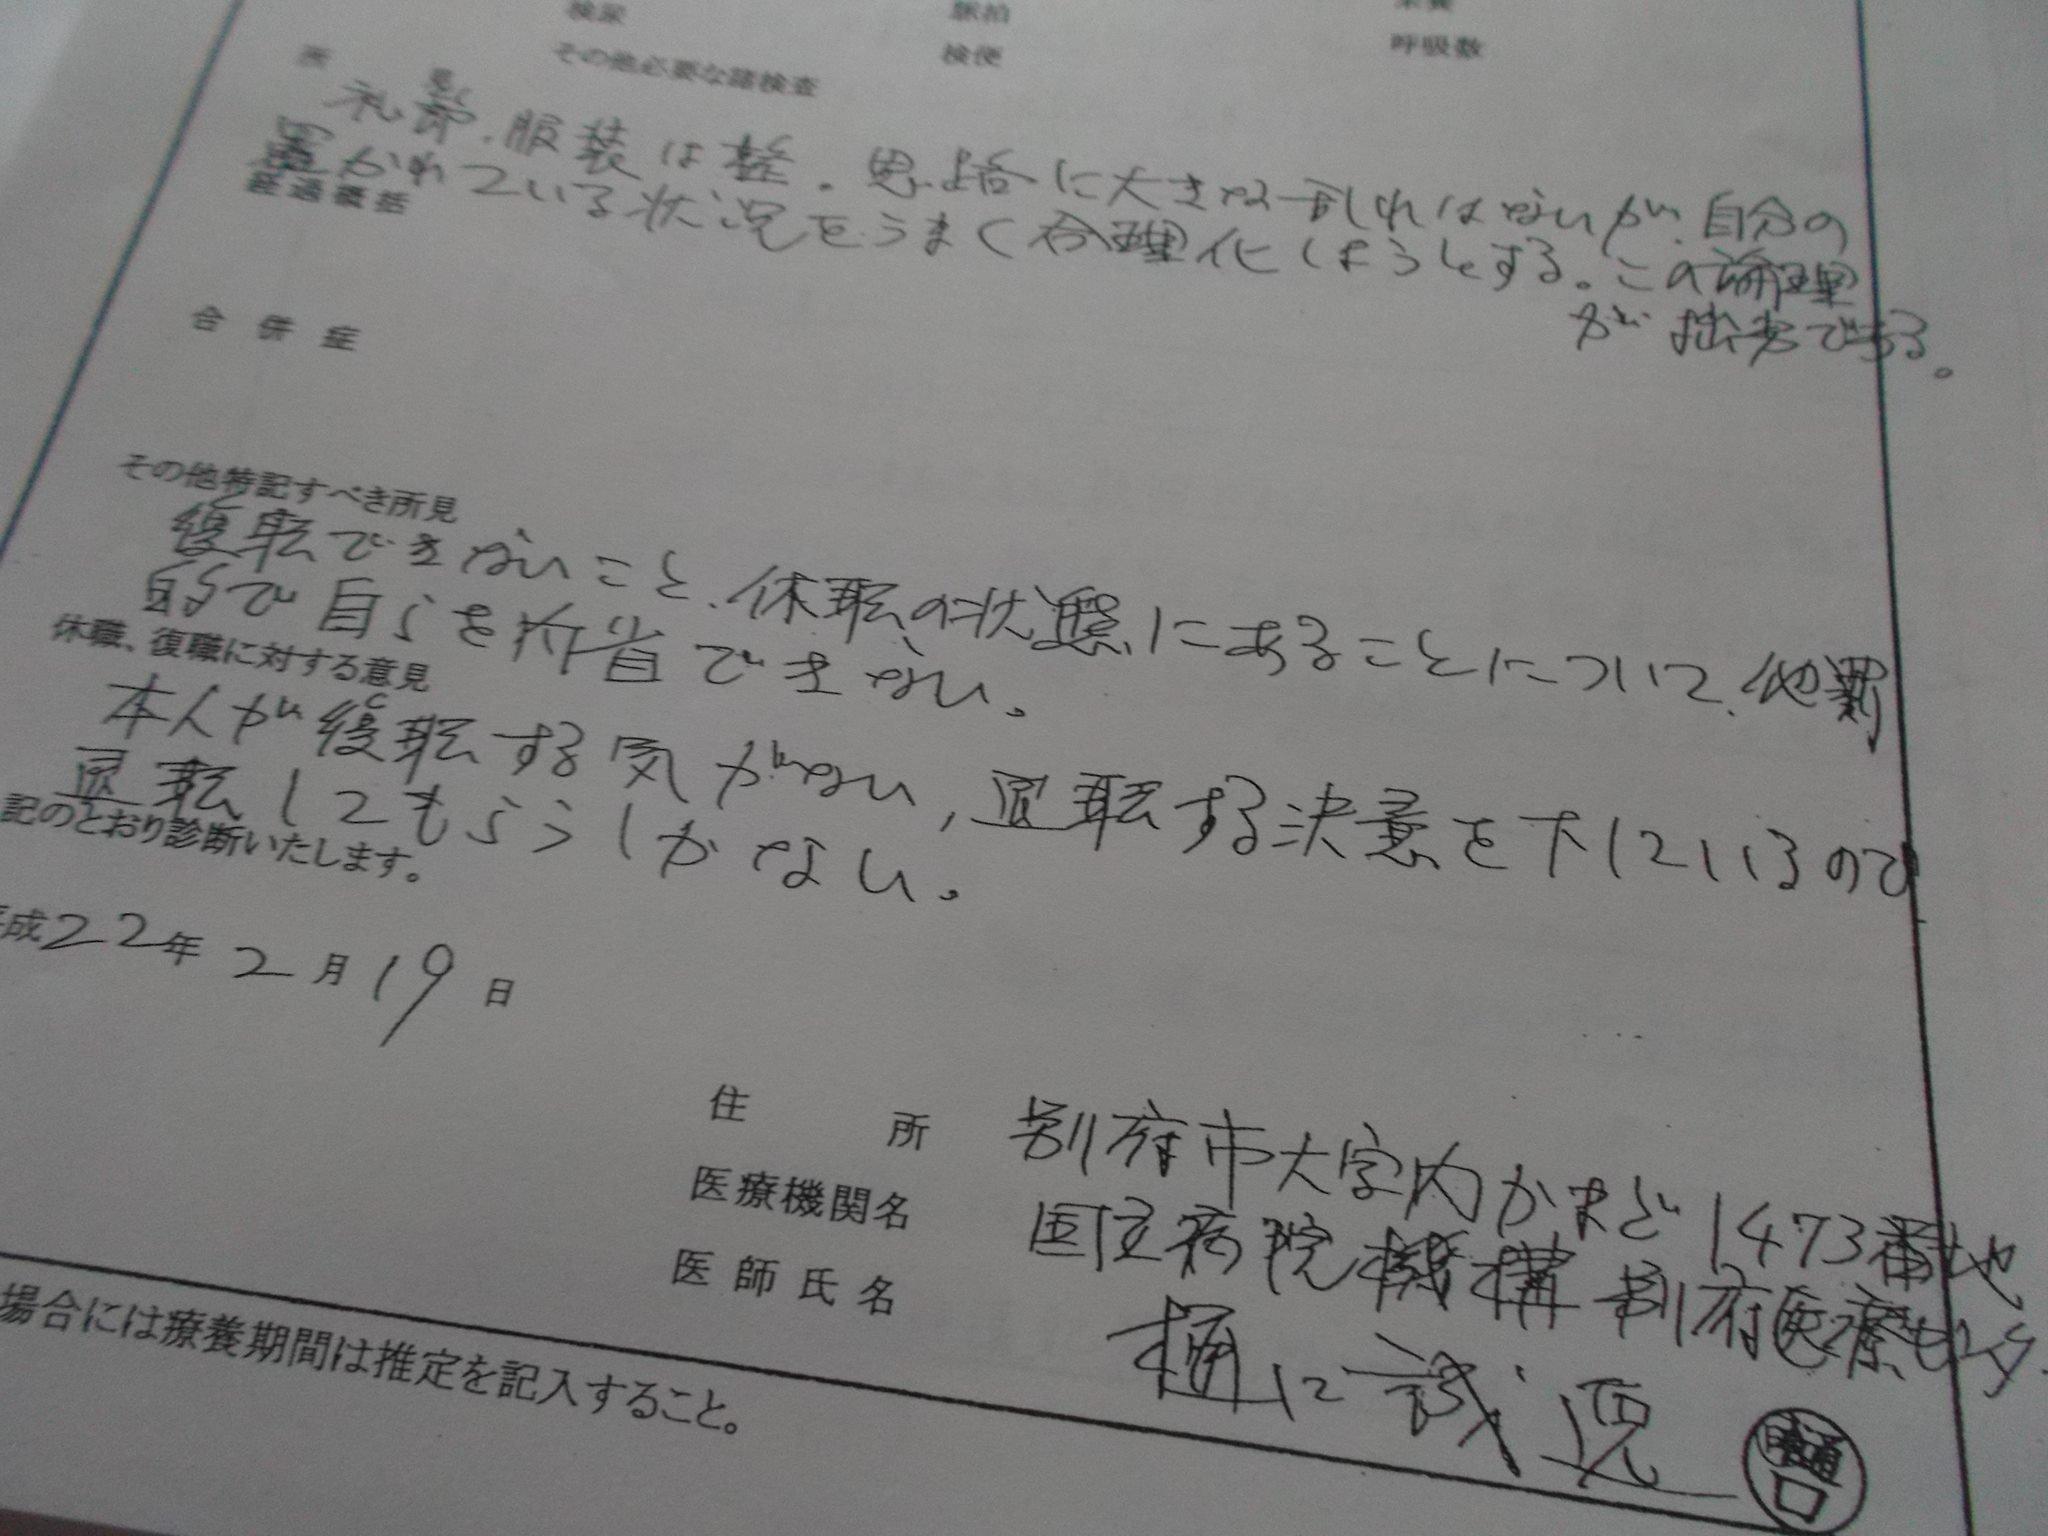 検尿 脈拍 栄養
その他必要な諸検査 検便 呼吸数
所見
礼節、服装は整。思路に大きな乱れはないが、自分の
置かれている状況をうまく合理化しようとする。この論理
が拙劣である。
経過概括
合併症
その他特記すべき所見
復職できないこと、休職の状態にあることについて、他罰
的で自らを内省できない。
休職、復職に対する意見
本人が復職する気がない、退職する決意を下しているので
退職してもらうしかない。
記のとおり診断いたします。
平成22年2月19日
住所 別府市大字内かまど1473番地
医療機関名 国立病院機構別府医療センター
医師氏名 樋口
場合には療養期間は推定を記入すること。